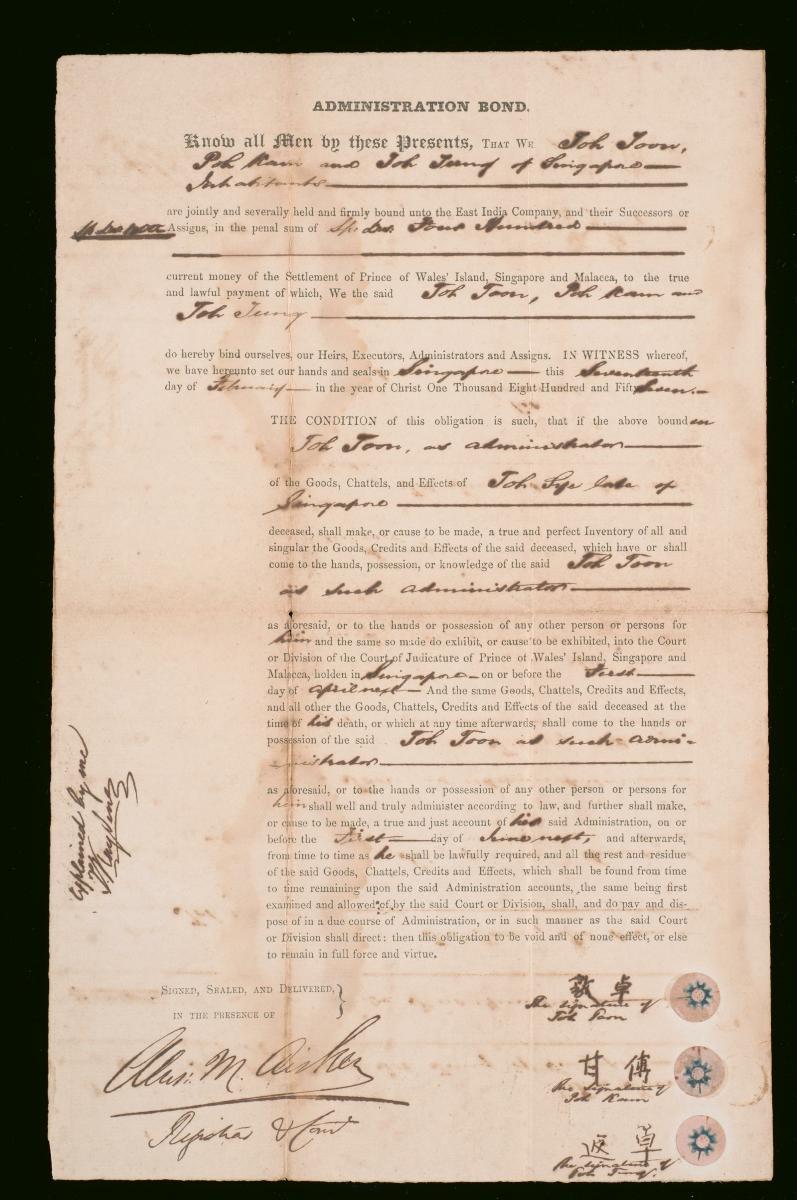 ADMINISTRATION BOND.
Know all Men by these Presents, THAT WE Toh Toon,
Poh Kam and Toh Tung of Singapore
Inhabitants
are jointly and severally held and firmly bound unto the East India Company, and their Successors or
Assigns, in the penal sum of Sp. Drs. Four Hundred
current money of the Settlement of Prince of Wales' Island, Singapore and Malacca, to the true
and lawful payment of which, We the said Toh Toon, Poh Kam and
Toh Tung
do hereby bind ourselves, our Heirs, Executors, Administrators and Assigns. IN WITNESS whereof,
we have hereunto set our hands and seals in Singapore this Seventeenth
day of February in the year of Christ One Thousand Eight Hundred and Fifty Seven.
THE CONDITION of this obligation is such, that if the above bounden
Toh Toon, as administrator
of the Goods, Chattels, and Effects of Toh Sye late of
Singapore
deceased, shall make, or cause to be made, a true and perfect Inventory of all and
singular the Goods, Credits and Effects of the said deceased, which have or shall
come to the hands, possession, or knowledge of the said Toh Toon
as such administrator
as aforesaid, or to the hands or possession of any other person or persons for
him and the same so made do exhibit, or cause to be exhibited, into the Court
or Division of the Court of Judicature of Prince of Wales' Island, Singapore and
Malacca, holden in Singapore on or before the First
day of April next And the same Goods, Chattels, Credits and Effects,
and all other the Goods, Chattels, Credits and Effects of the said deceased at the
time of his death, or which at any time afterwards, shall come to the hands or
possession of the said Toh Toon as such admi-
nistrator
as aforesaid, or to the hands or possession of any other person or persons for
him shall well and truly administer according to law, and further shall make,
or cause to be made, a true and just account of his said Administration, on or
before the First day of June next, and afterwards,
from time to time as he shall be lawfully required, and all the rest and residue
of the said Goods, Chattels, Credits and Effects, which shall be found from time
to time remaining upon the said Administration accounts, the same being first
examined and allowed of, by the said Court or Division, shall, and do pay and dis-
pose of in a due course of Administration, or in such manner as the said Court
or Division shall direct: then this obligation to be void and of none effect, or else
to remain in full force and virtue.
Explained by me
SIGNED, SEALED, AND DELIVERED,
IN THE PRESENCE OF
M.
Registrar
敦 卓
The signature of
Toh Toon
甘 傅
The signature of
Poh Kam
返 卓
The signature of
Toh Tung.